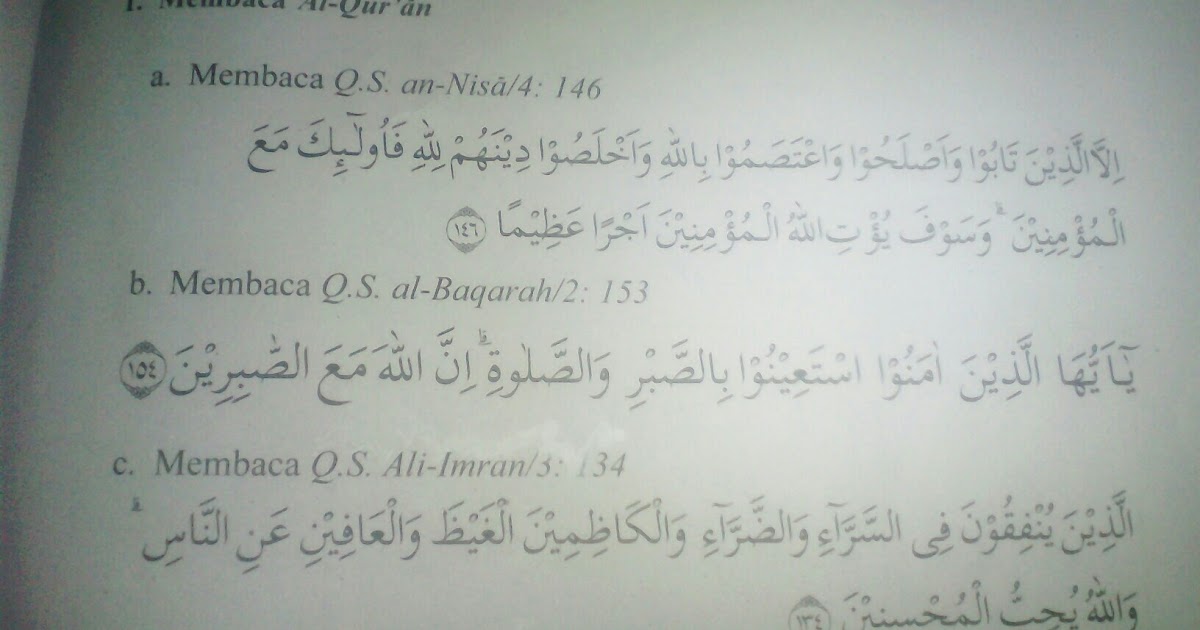 1. Membaca Al-Qur'ān
a. Membaca Q.S. an-Nisā/4: 146
اِلَّا الَّذِيْنَ تَابُوْا وَاَصْلَحُوْا وَاعْتَصَمُوْا بِاللّٰهِ وَاَخْلَصُوْا دِيْنَهُمْ لِلّٰهِ فَاُولٰۤىِٕكَ مَعَ
الْمُؤْمِنِيْنَ ۗ وَسَوْفَ يُؤْتِ اللّٰهُ الْمُؤْمِنِيْنَ اَجْرًا عَظِيْمًا ١٤٦
b. Membaca Q.S. al-Baqarah/2: 153
يٰٓاَيُّهَا الَّذِيْنَ اٰمَنُوْا اسْتَعِيْنُوْا بِالصَّبْرِ وَالصَّلٰوةِ ۗ اِنَّ اللّٰهَ مَعَ الصّٰبِرِيْنَ ١٥٤
c. Membaca Q.S. Ali-Imran/3: 134
الَّذِيْنَ يُنْفِقُوْنَ فِى السَّرَّاۤءِ وَالضَّرَّاۤءِ وَالْكَاظِمِيْنَ الْغَيْظَ وَالْعَافِيْنَ عَنِ النَّاسِ ۗ
وَاللّٰهُ يُحِبُّ الْمُحْسِنِيْنَ ١٣٤